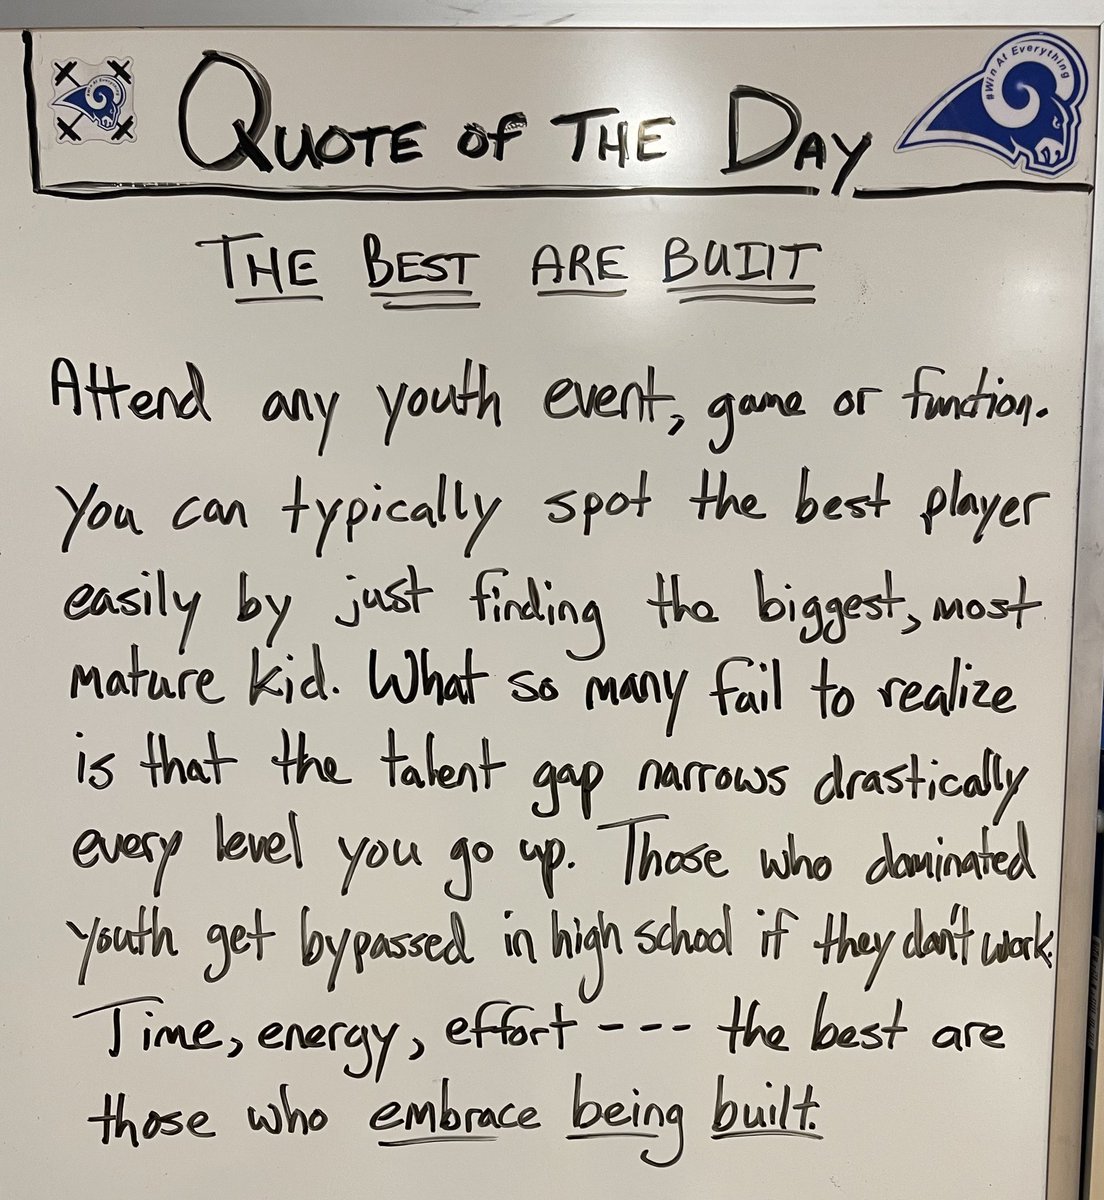 #Win At Everything
QUOTE OF THE DAY
#Win At Everything
THE BEST ARE BUILT
Attend any youth event, game or function.
You can typically spot the best player
easily by just finding the biggest, most
mature kid. What so many fail to realize
is that the talent gap narrows drastically
every level you go up. Those who dominated
youth get bypassed in high school if they don't work.
Time, energy, effort --- the best are
those who embrace being built.